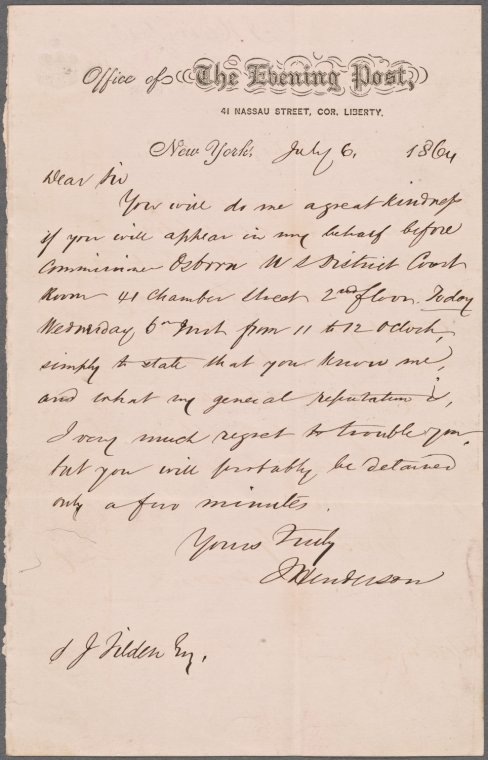 Office of The Evening Post,
41 NASSAU STREET, COR. LIBERTY.
New York, July 6, 1864
Dear Sir
You will do me a great kindness
if you will appear in my behalf before
Commissioner Osborn U S District Court
Room 41 Chamber Street 2nd floor. Today
Wednesday 6th Inst from 11 to 12 Oclock,
simply to state that you know me,
and what my general reputation is,
I very much regret to trouble you,
but you will probably be detained
only a few minutes.
Yours Truly
I Henderson
S J Tilden Esq.